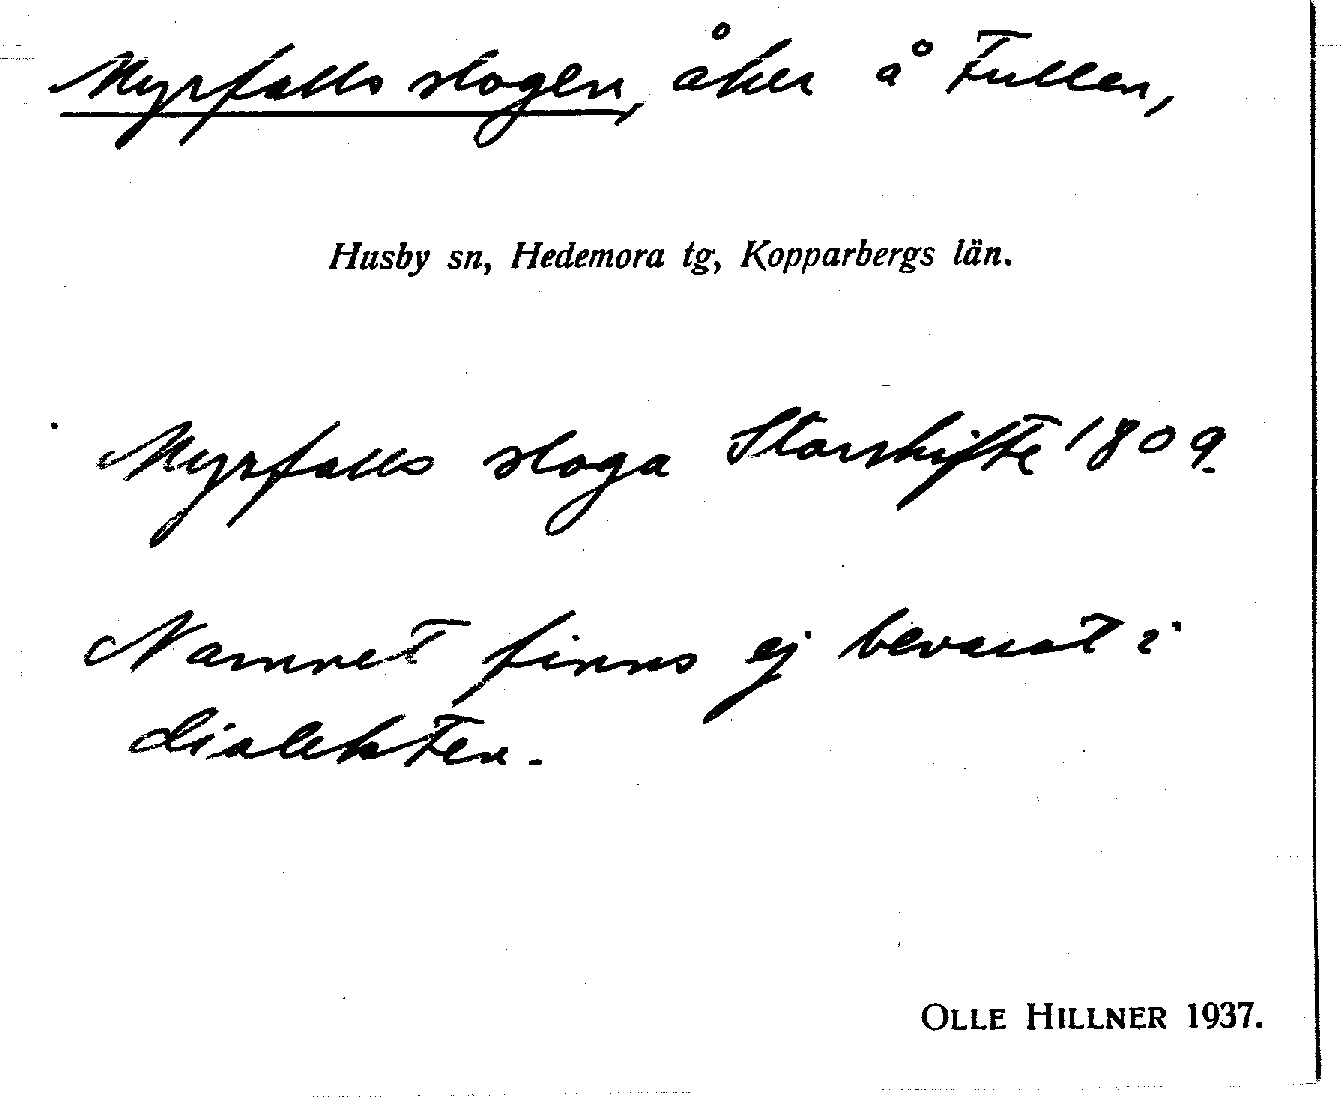 Myrfalls slogen, åker å Fullen,
Husby sn, Hedemora tg, Kopparbergs län.
Myrfalls sloga Storskifte 1809.
Namnet finns ej bevarat i
dialekten.
OLLE HILLNER 1937.